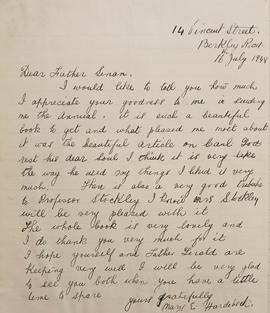 14 Vincent Street.
Berkley Road.
16th July 1948
Dear Father Senan.
I would like to tell you how much
I appreciate your goodness to me in sending
me the Annual. it is such a beautiful
book to get and what pleased me most about
it was the beautiful article on Carl God
rest his dear soul I think it is very like
the way he used my things I liked it very
much. There is also a very good tribute
to Professor Stockley I know Mrs Stockley
will be very pleased with it
The whole book is very lovely and
I do thank you very much for it
I hope yourself and Father Gerald are
keeping very well I will be very glad
to see you both when you have a little
time to spare
yours gratefully
Mary E. Hardebeck